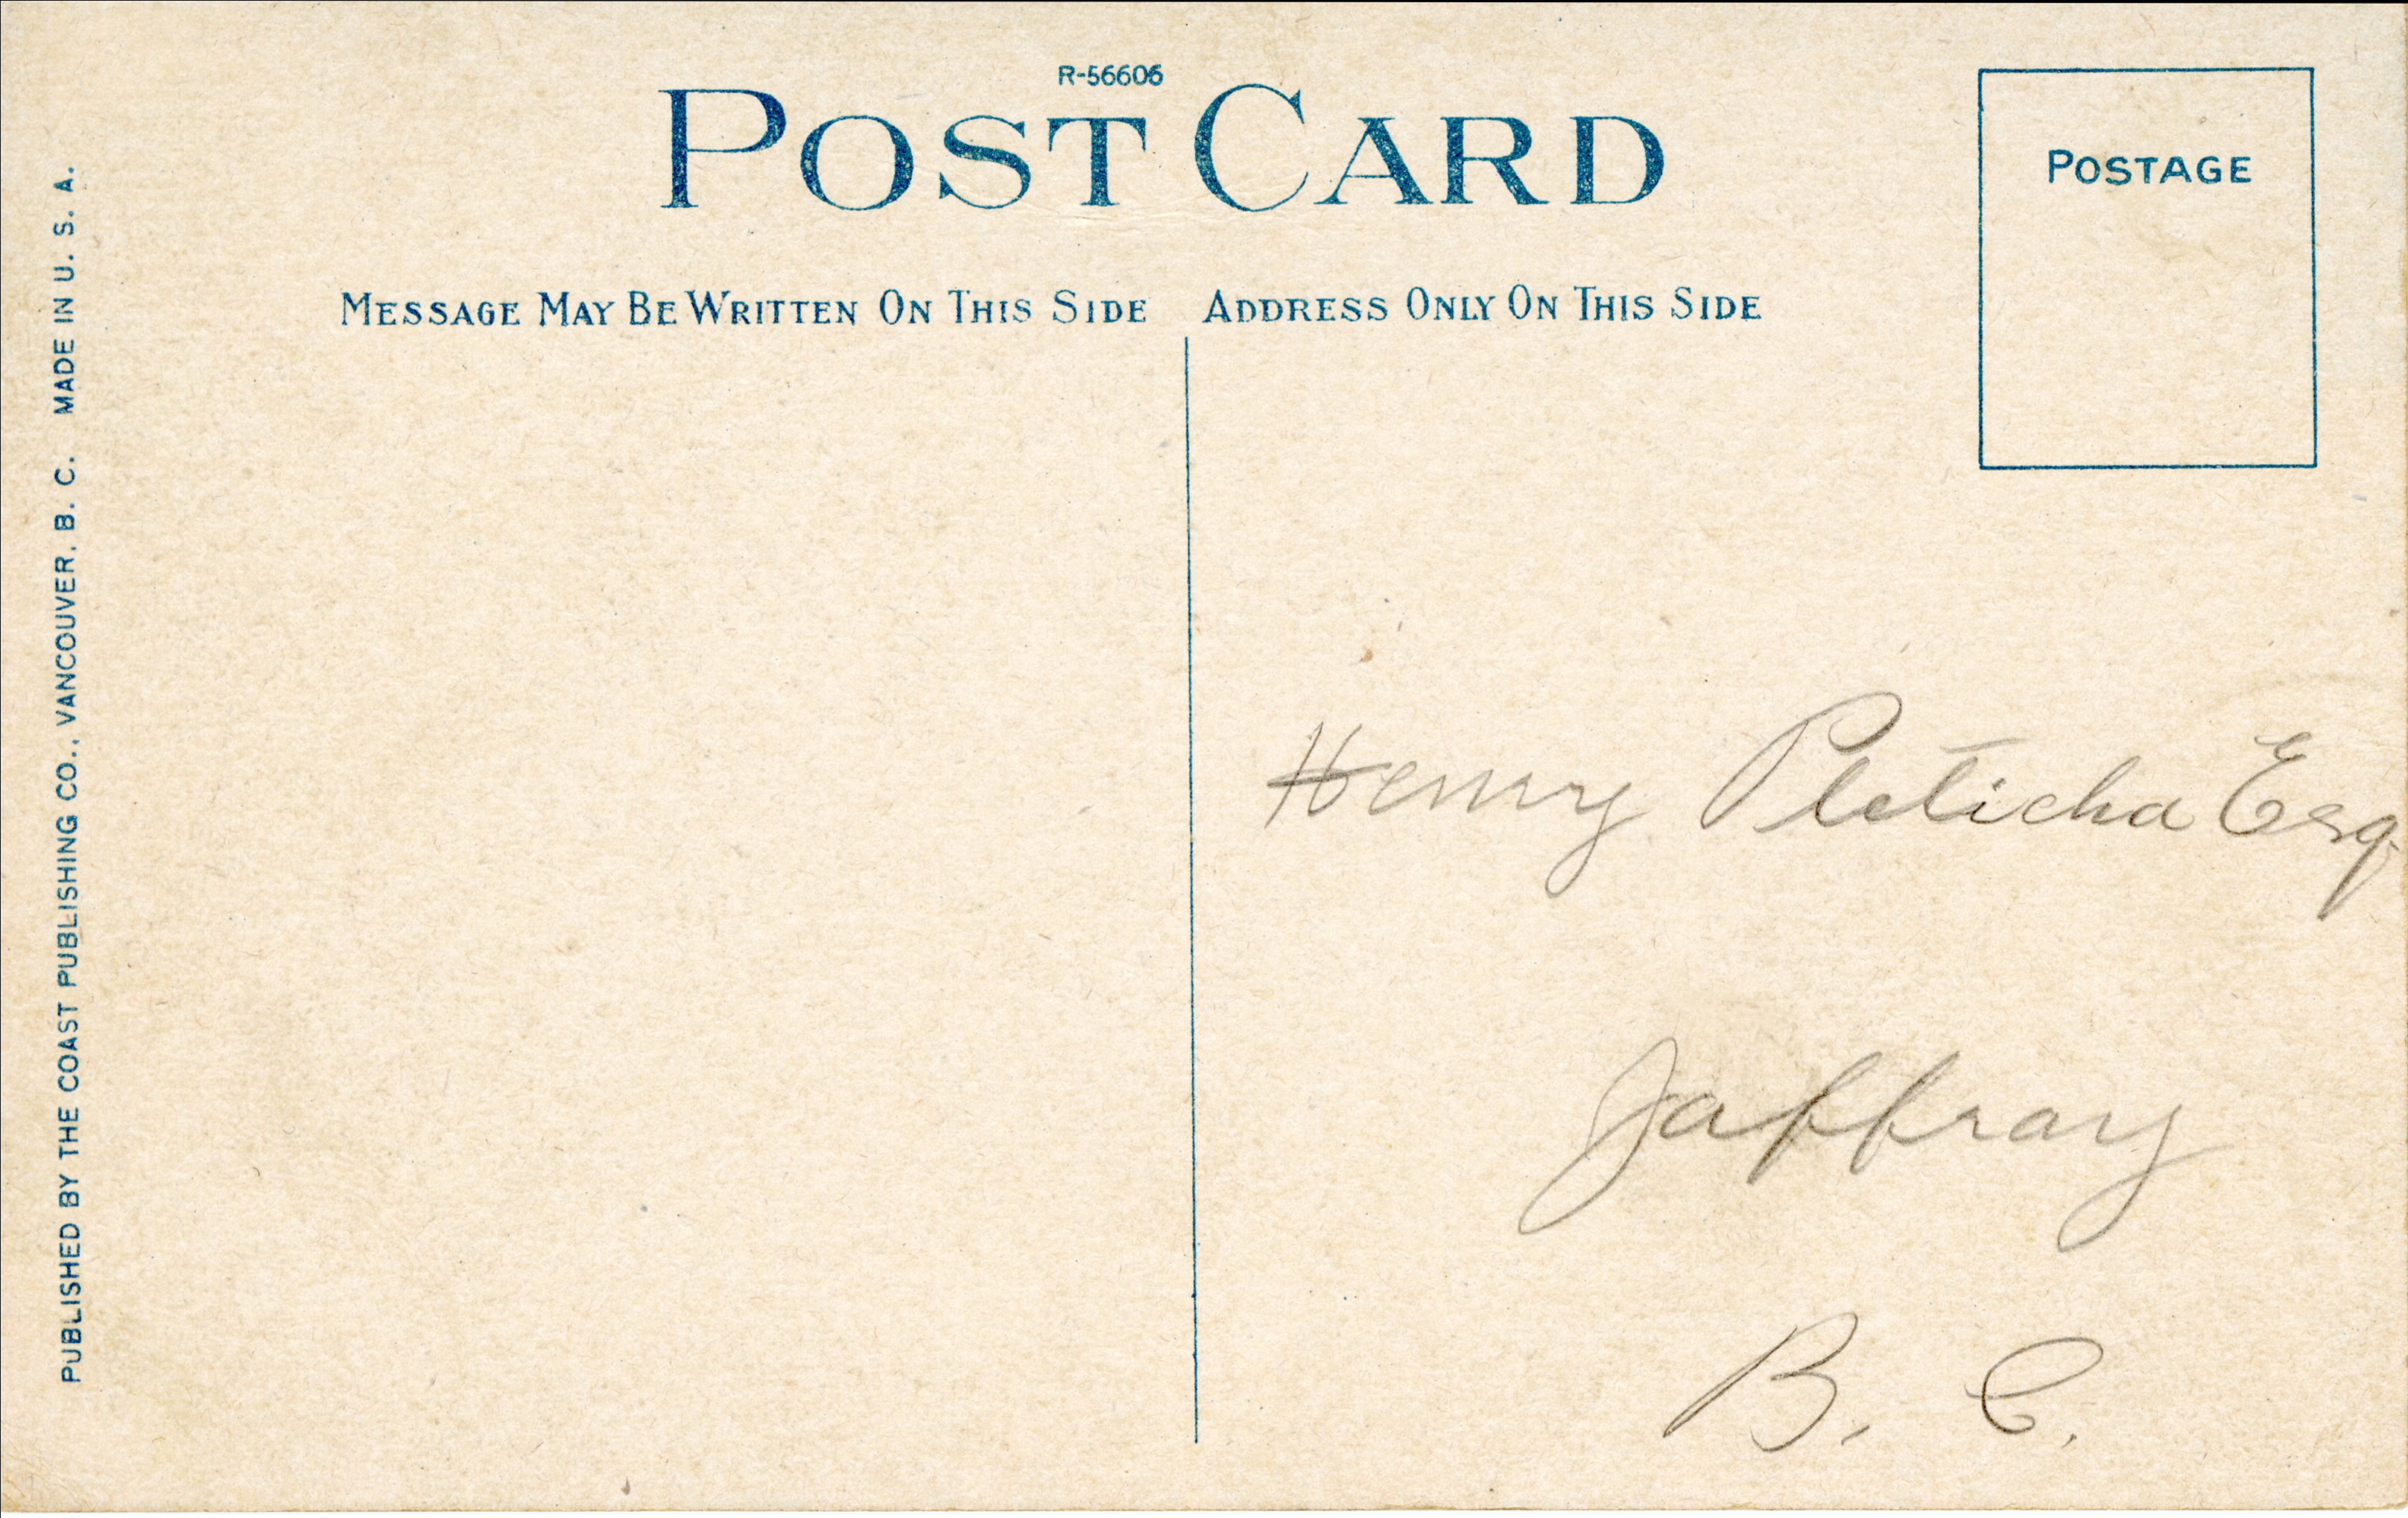 R-56606
POST CARD
POSTAGE
MESSAGE MAY BE WRITTEN ON THIS SIDE
ADDRESS ONLY ON THIS SIDE
Henry Pleticha Esq.
Jaffray
B. C.
PUBLISHED BY THE COAST PUBLISHING CO., VANCOUVER, B. C. MADE IN U. S. A.